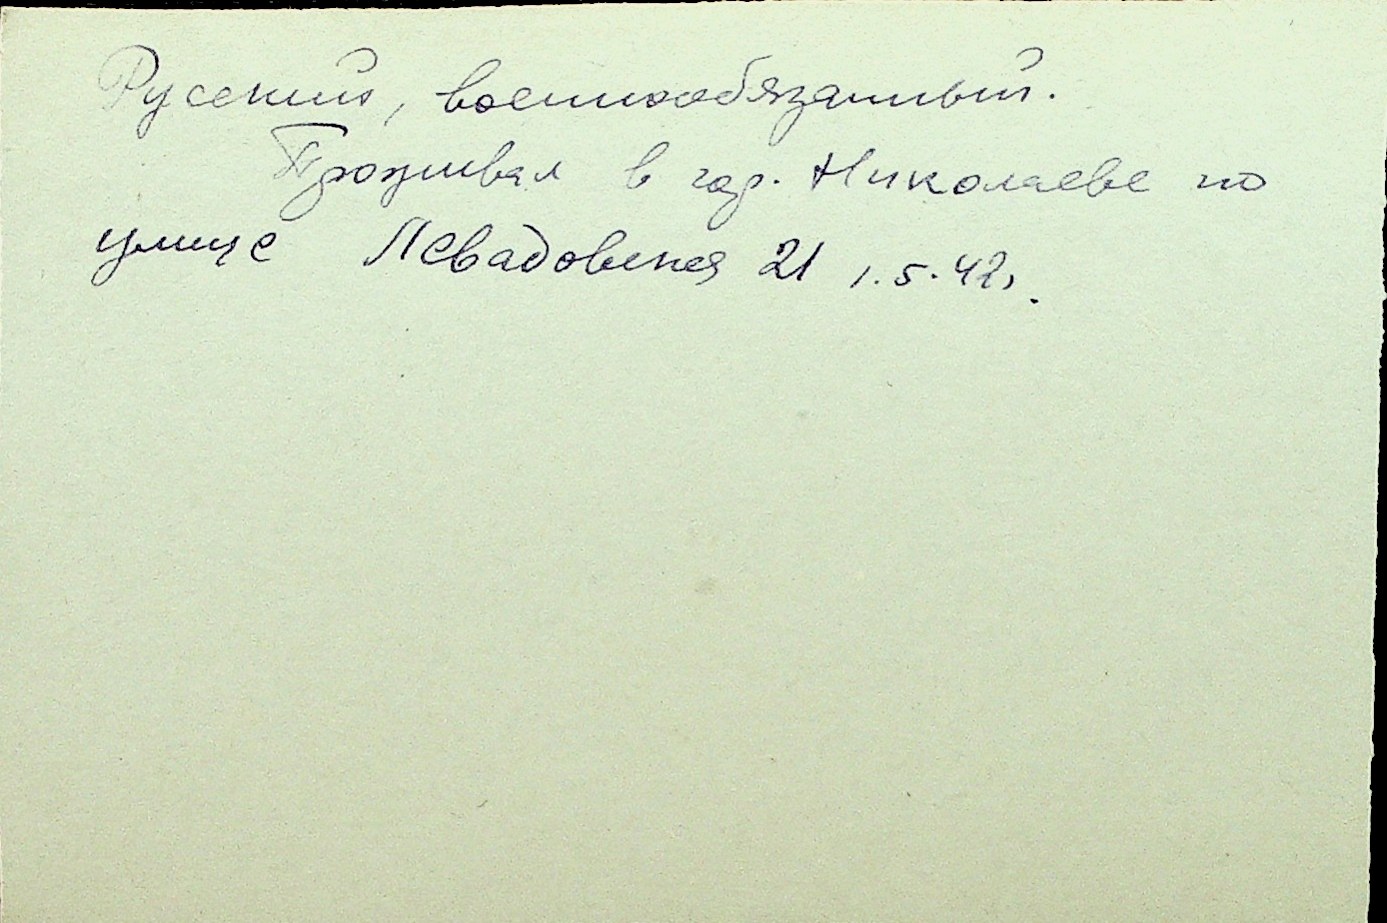 Русский, военнообязанный.
Проживал в гор. Николаеве по
улице Левадовская 21 1.5.42г.